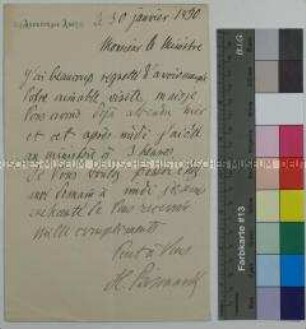 le 30 janvier 1890.
Monsieur le Ministre
J'ai beaucoup regretté d'avoir manqué
votre aimable visite, mais je
vous avais déjà attendu hier
et cet après midi j'ai été
au ministère à 3 heures
Si vous voulez passer chez
moi demain à midi je serai
enchanté de vous recevoir
mille compliments
Tout à vous
DEUTSCHES HISTORISCHES MUSEUM
B.I.G.
Farbkarte #13